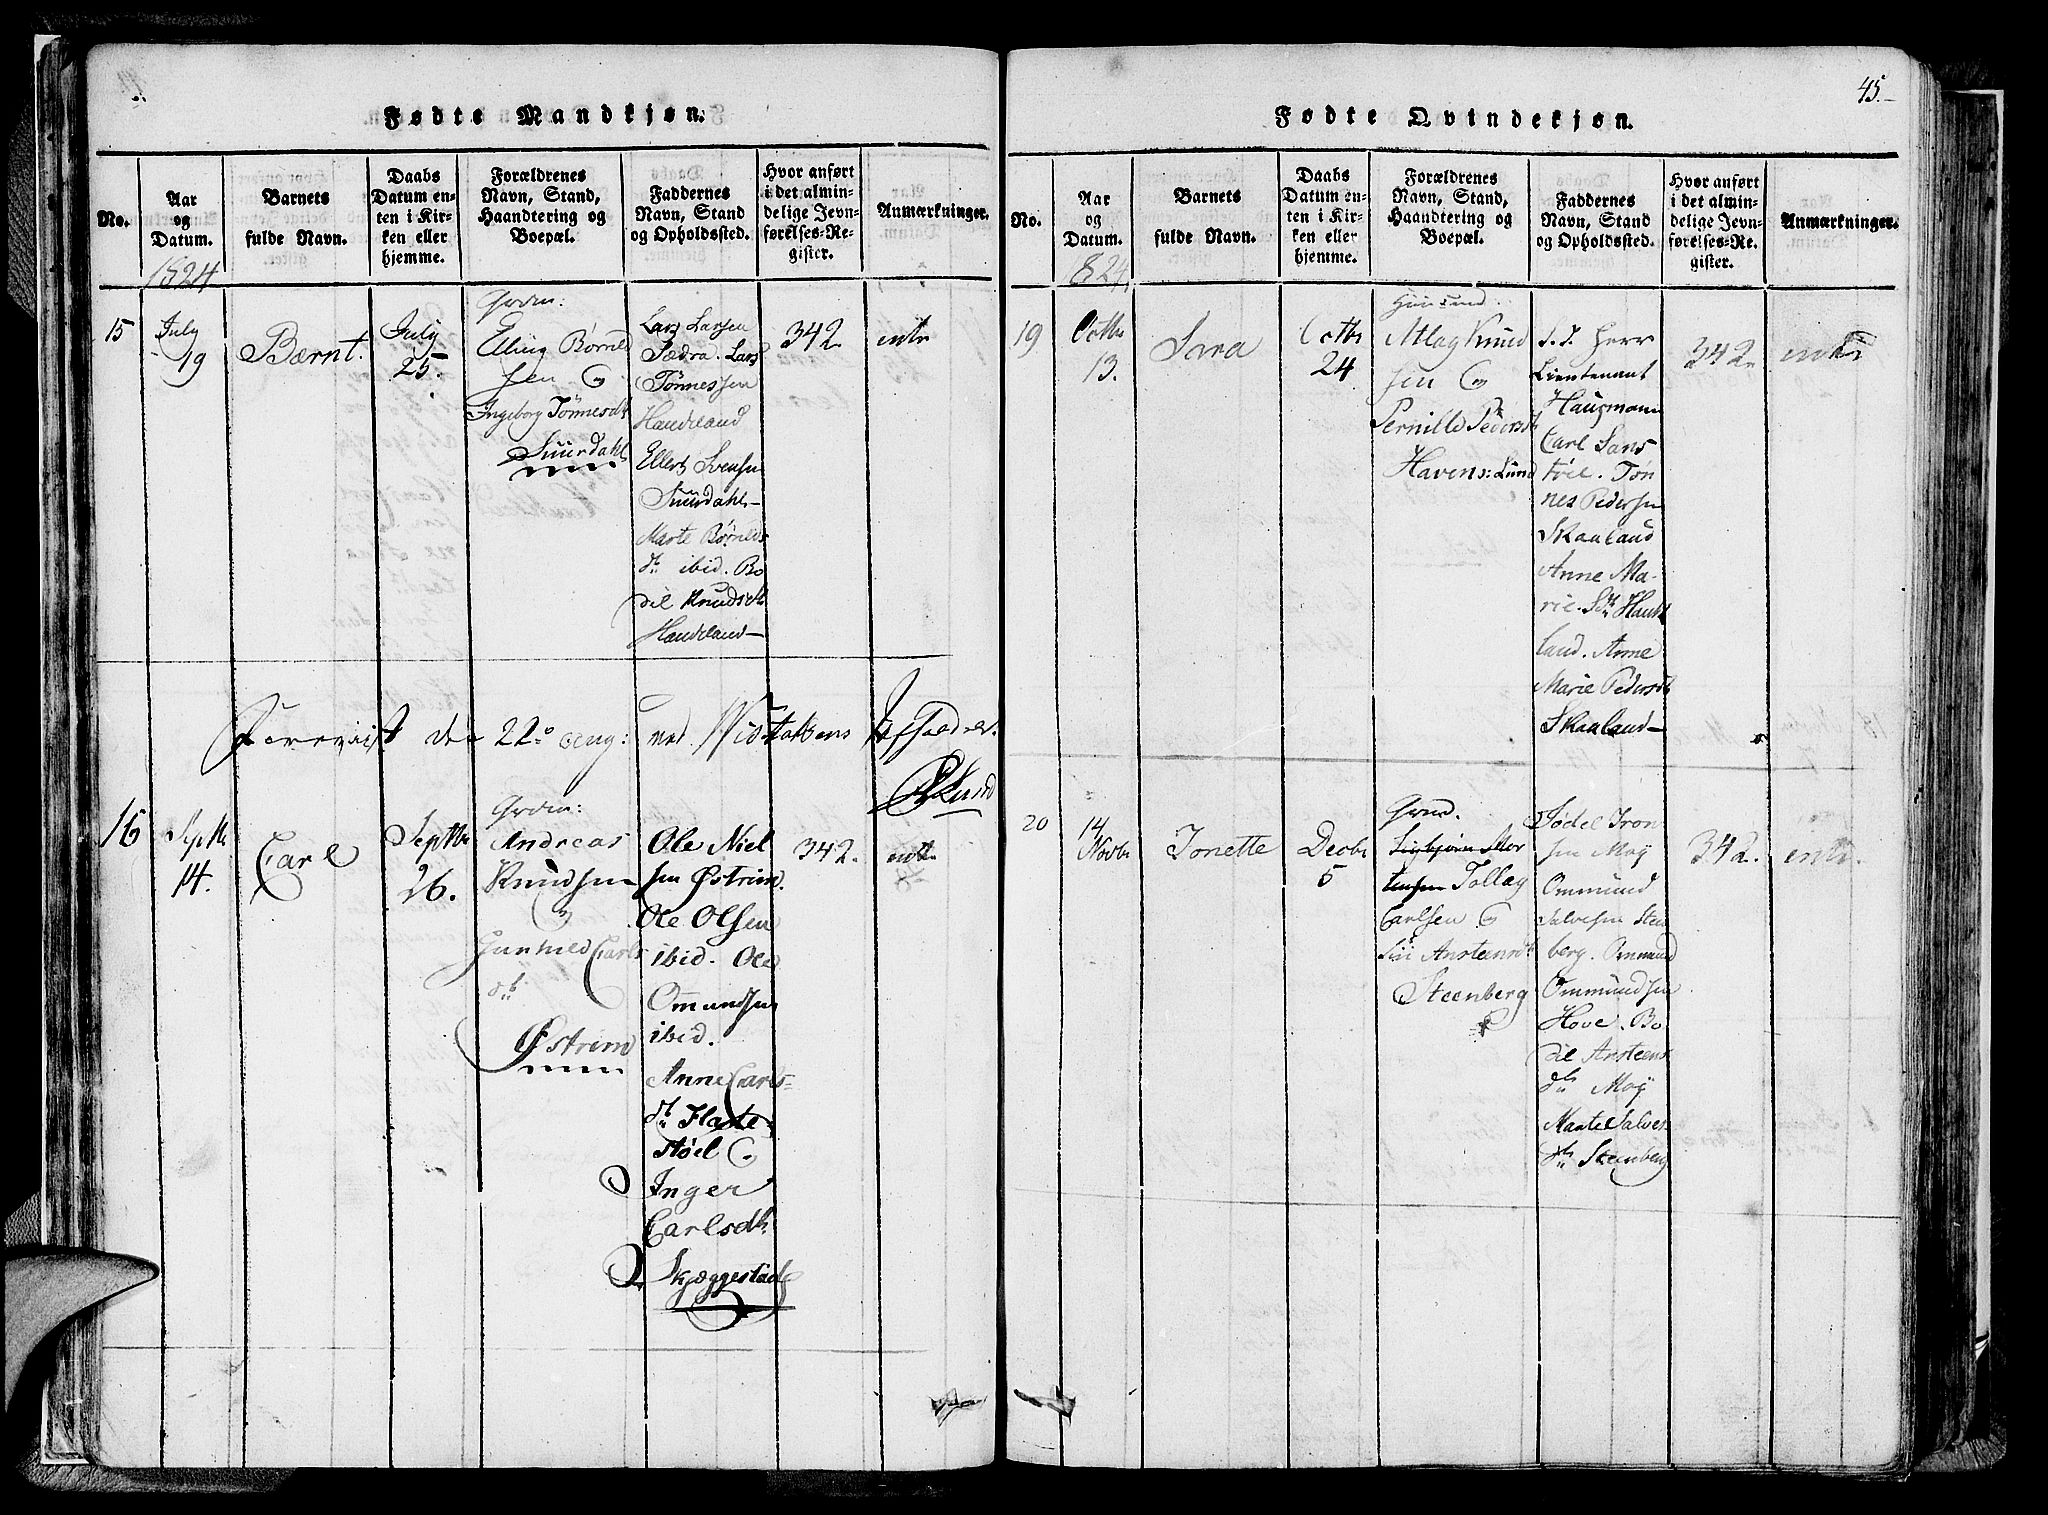 Fødte Mandkjøn.
No.
Aar
og
Datum.
1824
Barnets
fulde Navn.
Daabs
Datum en-
ten i Kir-
ken eller
hjemme.
Forældrenes
Navn, Stand,
Haandtering og
Boepæl.
Faddernes
Navn, Stand
og Opholdssted.
Hvor anført
i det almin-
delige Jevn-
førelses-Re-
gister.
Anmærkninger.
15
July
19
Bærnt.
July
25.
Elling Børild
sen &
Ingeborg Tønnesdt
Suurdahl
Lars Larsen
Sædra. Lars
Tønnessen
Haudeland
Ellert Svensen
Suurdahl-
Marte Børilds
dt ibid. Bo
dil Knudsdt
Haudeland-
342
den 22de Aug: ved
16
Septb
14.
Carl
Septbr
26.
Andreas
Knudsen
&
Gunhild Carls
dt
Østrim
Ole Niel
sen Østrim.
Ole Olsen
ibid. Ole
Ommundsen
ibid.
Anne Carls-
dt Flatte
støel &
Inger
Carlsdt
Skjæggestad
342.
45.
Fødte Qvindekjøn.
No.
Aar
og
Datum.
824
Barnets
fulde Navn.
Daabs
Datum en-
ten i Kir-
ken eller
hjemme.
Forældrenes
Navn, Stand,
Haandtering og
Boepæl.
Faddernes
Navn, Stand
og Opholdssted.
Hvor anført
i det almin-
delige Jevn-
førelses-Re-
gister.
Anmærkninger.
19
Octbr
13.
Sara
Octbr
24
Atlag Knud
sen &
Pernille Pedersdt
Havens: Lund
S. T. Herr
Lieutenant
Hausmann
Carl Sans
tøel. Tøn
nes Pedersen
Skaaland
Anne Ma-
rie Hauk
land. Anne
Marie Pedersdt
Skaaland-
342
20
14
Novbr
Tonette
Decbr
5
Sigbjørn Mor
tensen Tollag
Carlsen &
Siri Ansteensdt
Steenberg
Sødel Tron
sen Moÿ
Ommund
Salvesen Steen
berg. Ommund
Ommundsen
Hove. Bo
dil Ansteens
dt Moÿ
Marte Salves
dt Steenberg
342.